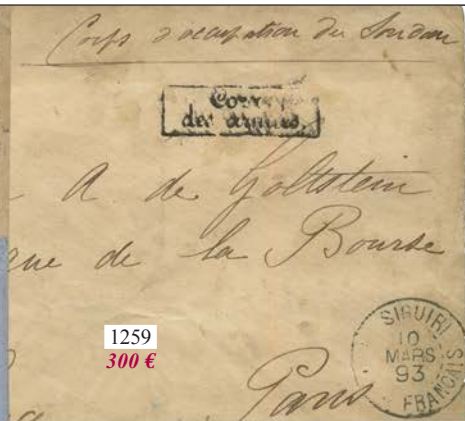 Corps d'occupation du Soudan
Corr
des armées.
A de Goltstein
que de la Bourse
1259
300 €
Paris
SIGUIRI
10
MARS
93
FRANÇAIS